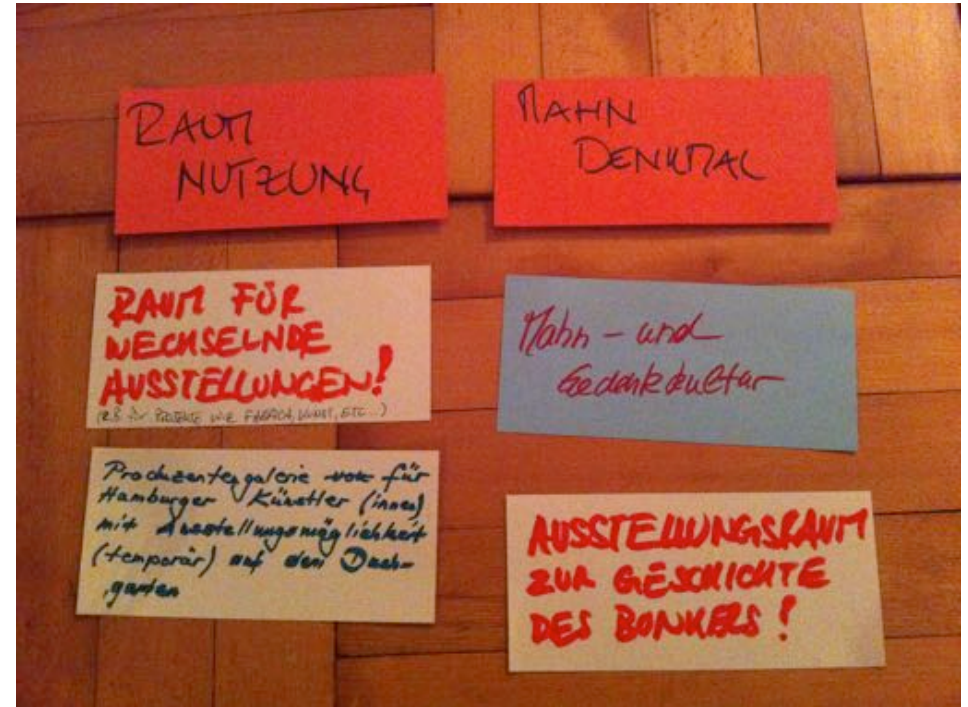 RAUM
NUTZUNG
RAUM FÜR
WECHSELNDE
AUSSTELLUNGEN!
(z.B. für PROJEKTE WIE KUNST, ETC...)
Produzentengalerie von für
Hamburger Künstler (innen)
mit Ausstellungsmöglichkeit
(temporär) auf dem Dach-
garten
MAHN
DENKMAL
Mahn - und
Gedenkkultur
AUSSTELLUNGSRAUM
ZUR GESCHICHTE
DES BUNKERS!